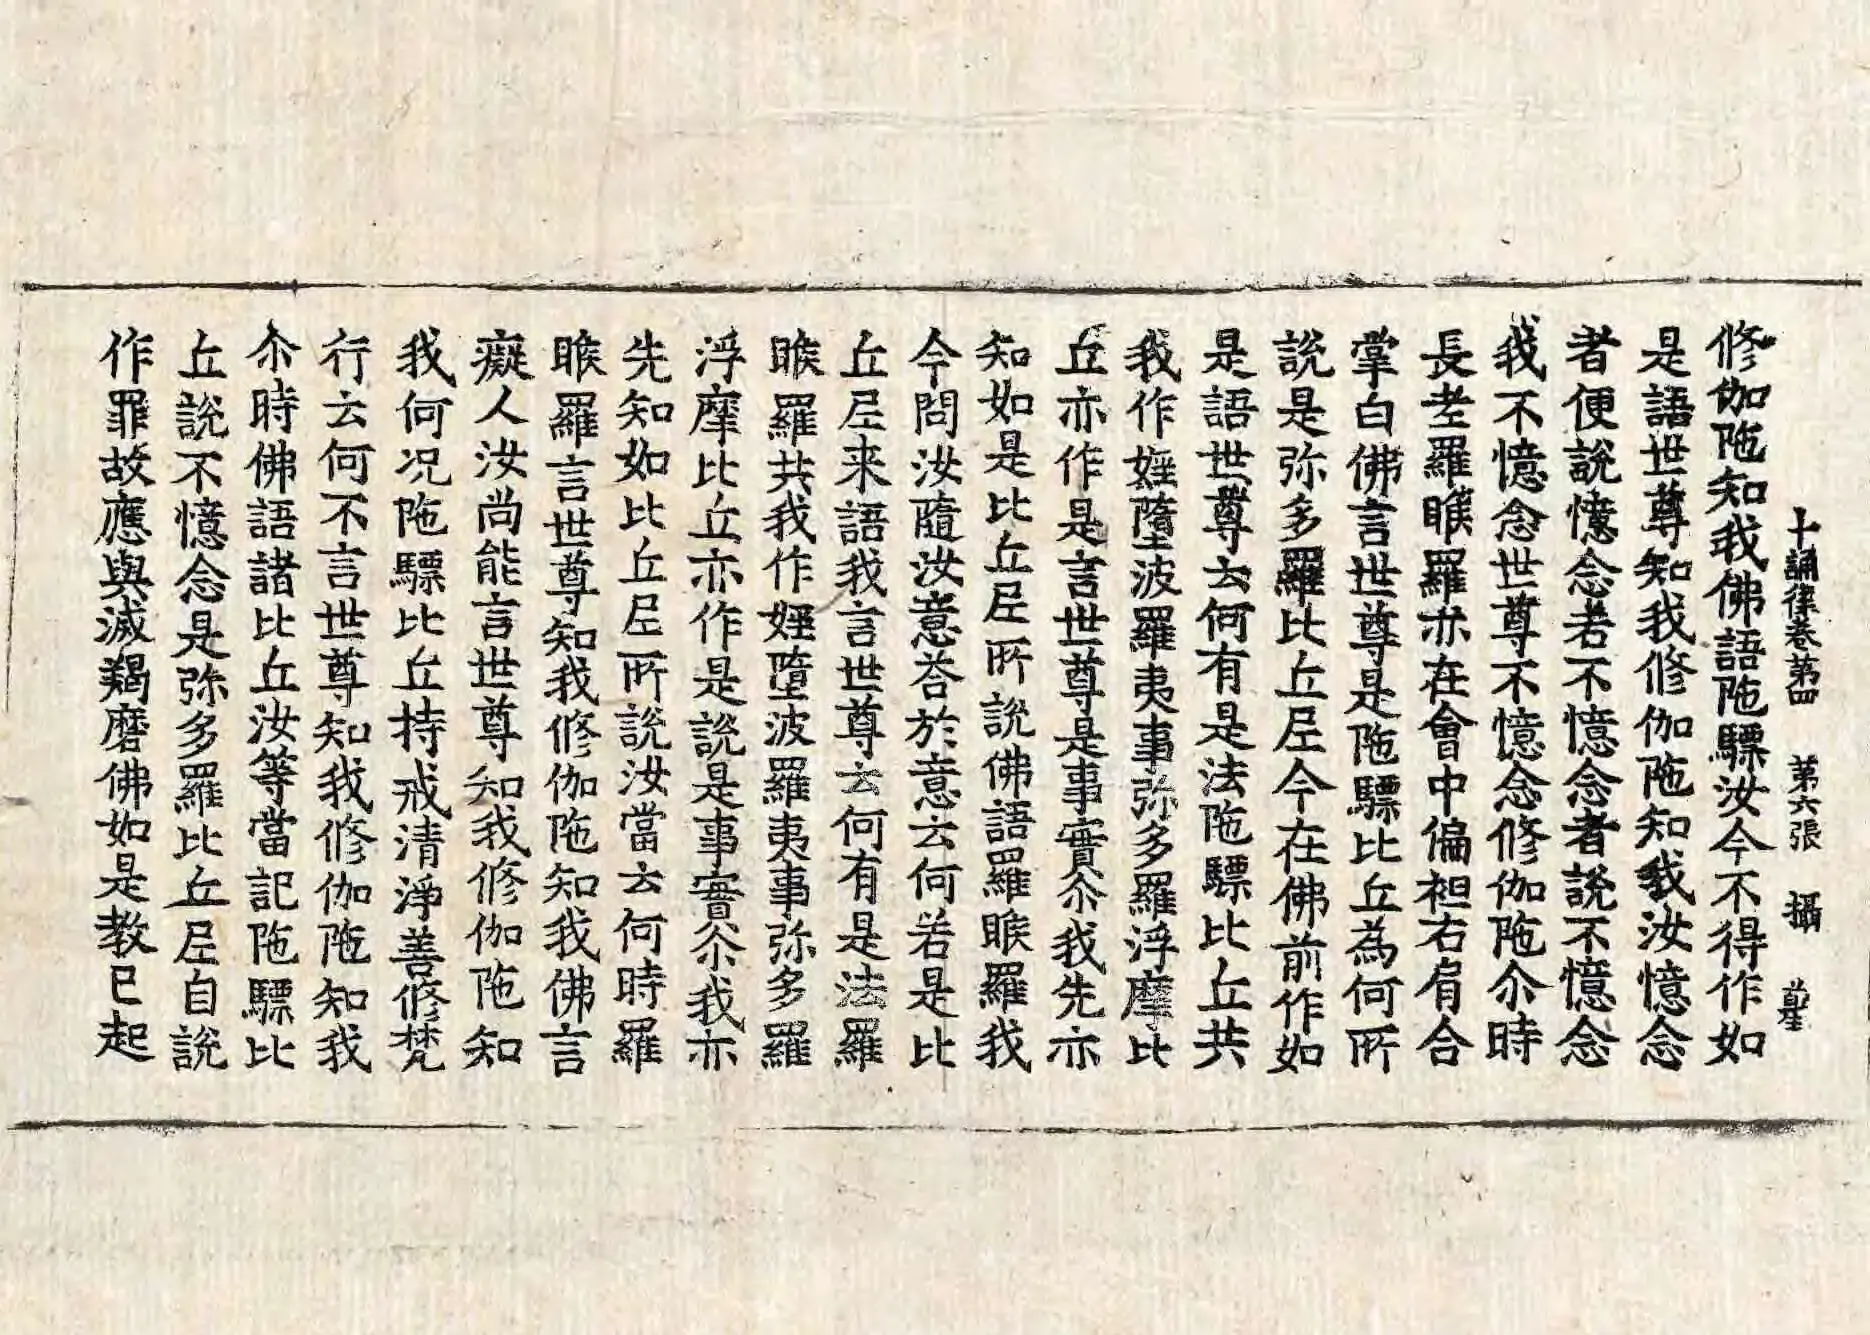 十誦律卷第四 第六張 攝
修伽陁知我佛語陁驃汝今不得作如
是語世尊知我修伽陁知我汝憶念
者便說憶念若不憶念者說不憶念
我不憶念世尊不憶念修伽陁尒時
長老羅睺羅亦在會中偏袒右肩合
掌白佛言世尊是陁驃比丘為何所
說是弥多羅比丘尼今在佛前作如
是語世尊云何有是法陁驃比丘共
我作婬墮波羅夷事弥多羅浮摩比
丘亦作是言世尊是事實尒我先亦
知如是比丘尼所說佛語羅睺羅我
今問汝隨汝意荅於意云何若是比
丘尼来語我言世尊云何有是法羅
睺羅共我作婬墮波羅夷事弥多羅
浮摩比丘亦作是說是事實尒我亦
先知如比丘尼所說汝當云何時羅
睺羅言世尊知我修伽陁知我佛言
癡人汝尚能言世尊知我修伽陁知
我何况陁驃比丘持戒清淨善修梵
行云何不言世尊知我修伽陁知我
尒時佛語諸比丘汝等當記陁驃比
丘說不憶念是弥多羅比丘尼自說
作罪故應與滅羯磨佛如是教已起